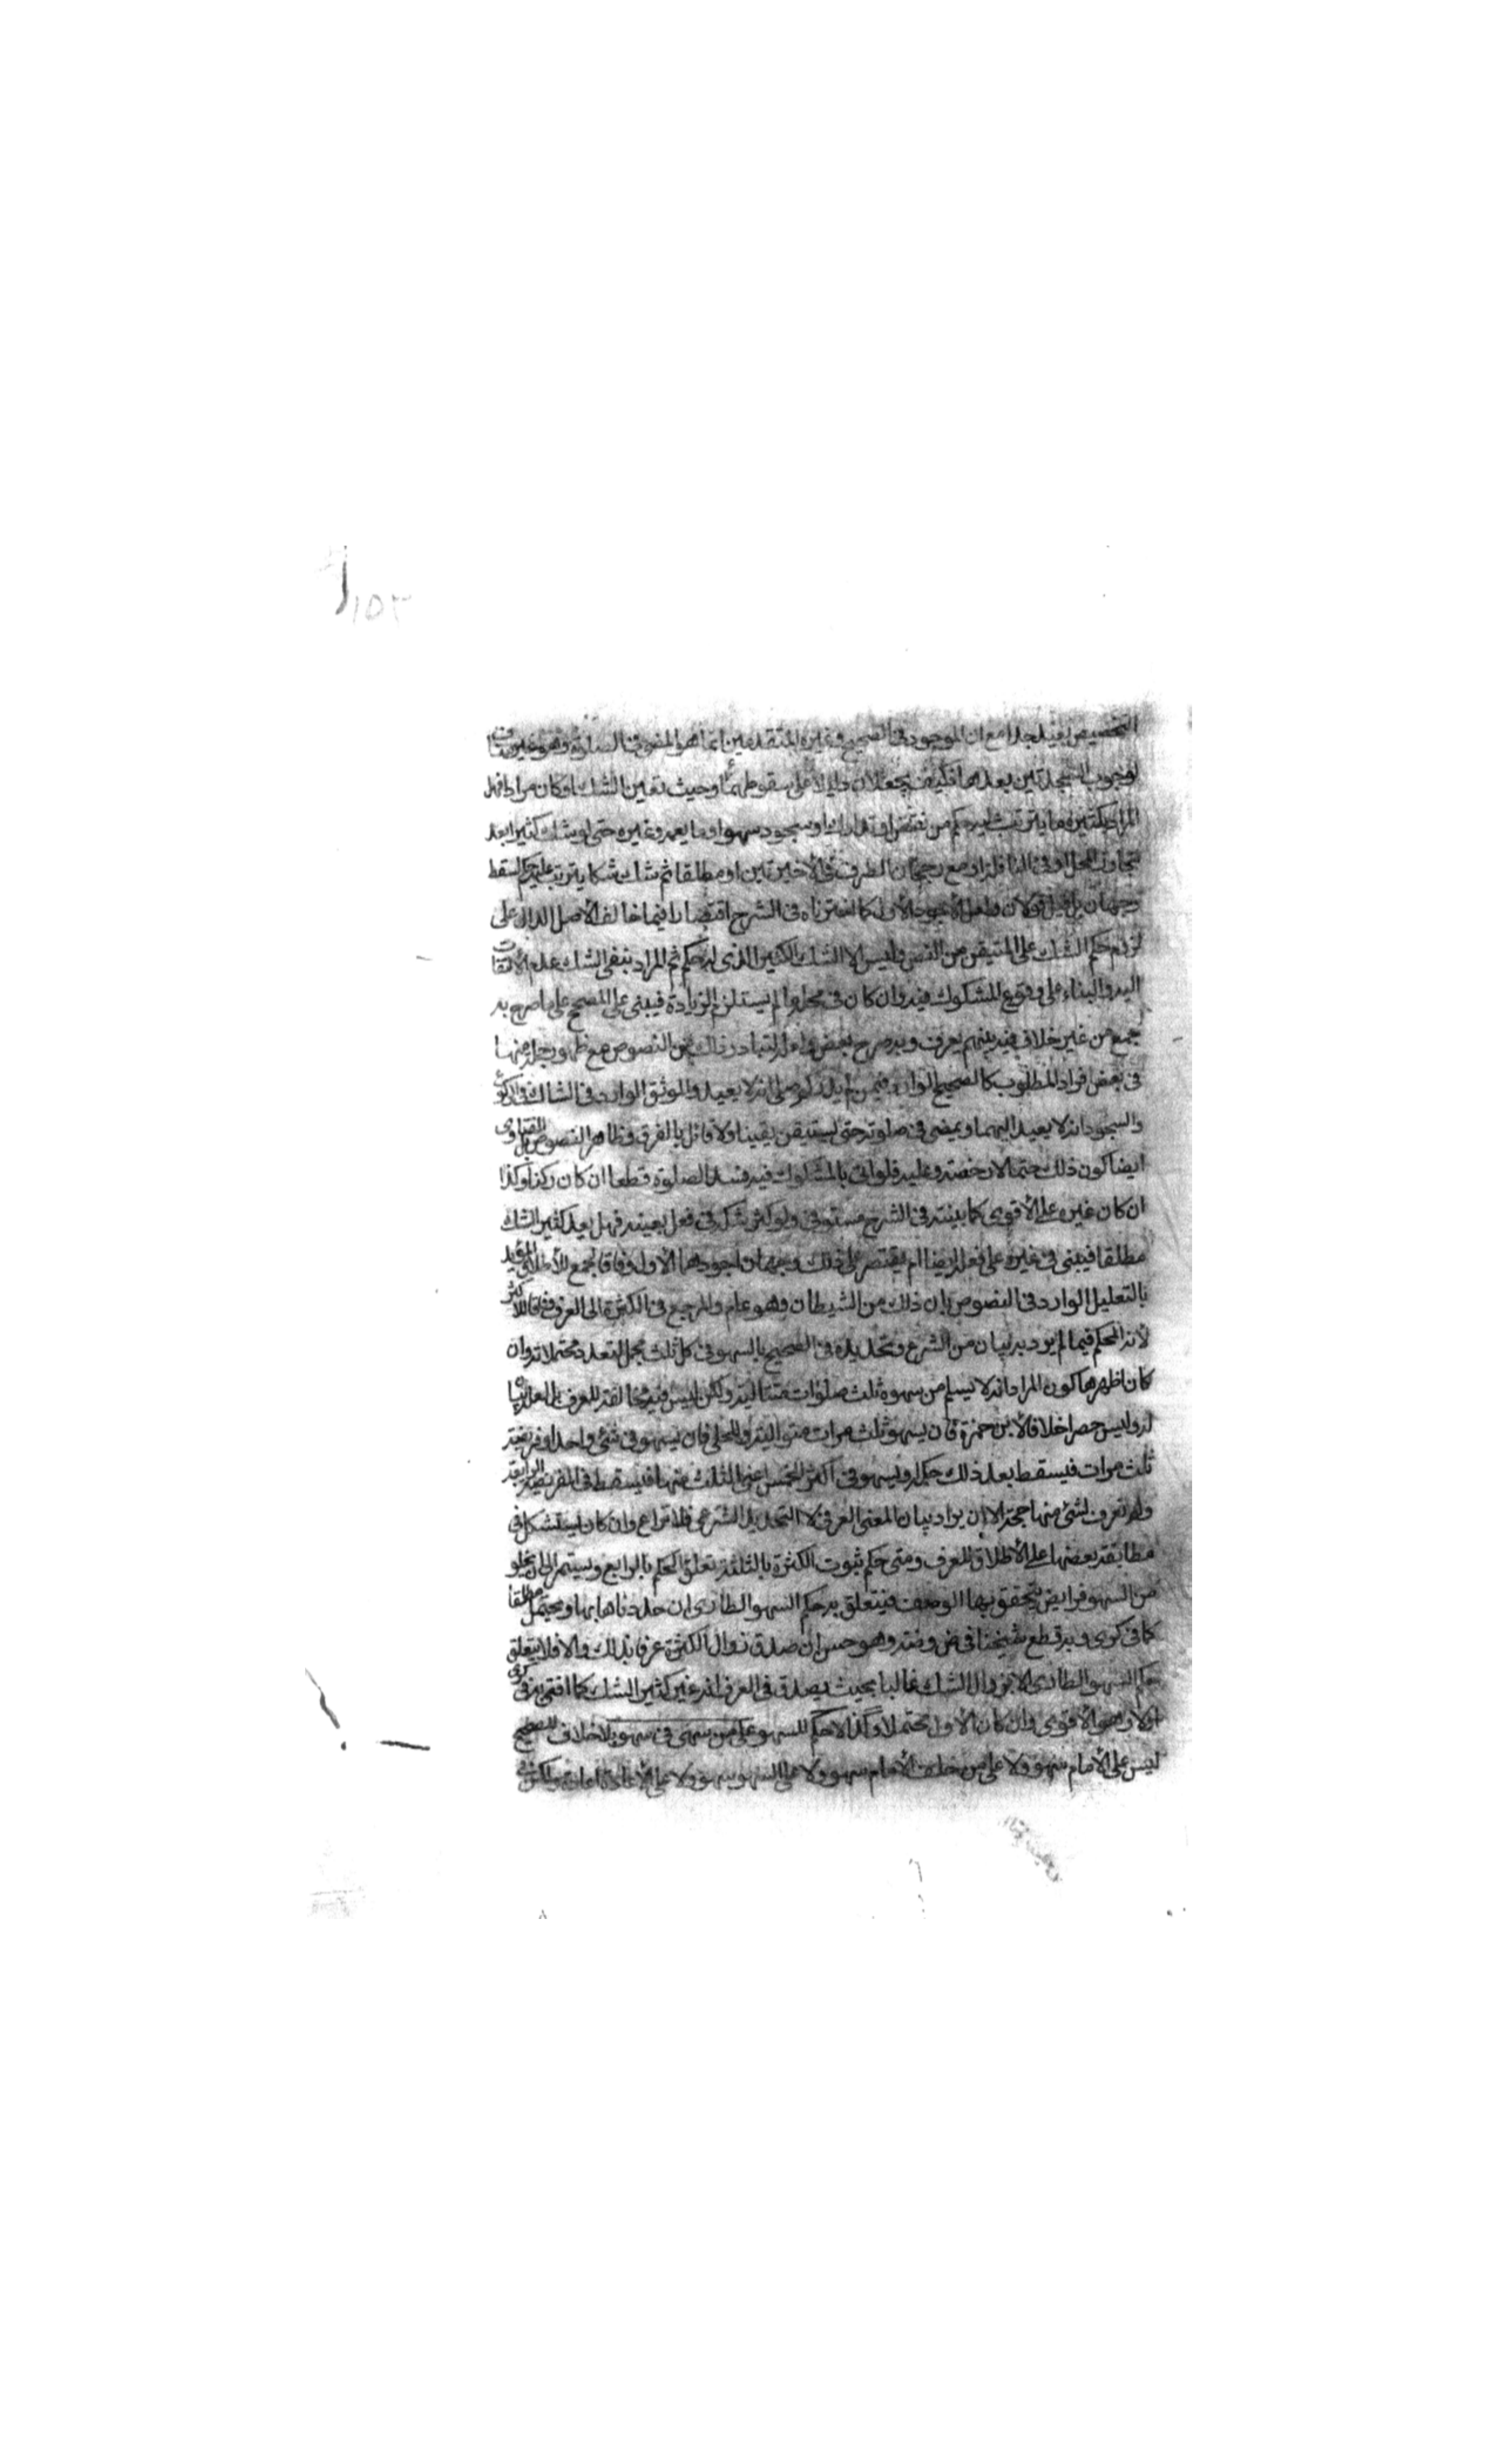 ١٥٢
التخصيص بعيد جدا مع ان الموجود في الصحيح وغيره المتقدمين انما هو المضي في الصلوة وهو غير مناف
لوجوب السجدتين بعدهما فكيف يجعلان دليلا على سقوطهما وحيث تعين الشك او كان مرادا فهل
المراد بكثيره ما يترتب عليه حكم من نقض او تدارك او سجود سهو او ما يعمه وغيره حتى لو شك كثيرا بعد
تجاوز المحل او في النافلة او مع رجحان الطرف في الاخيرتين او مطلقا ثم شك شكا يترتب عليه حكم سقط
وجهان بل قيل قولان ولعل الاجود الاول كما اخترناه في الشرح اقتصارا فيما خالف الاصل الدال على
لزوم حكم الشك على المتيقن من النص وليس الا الشك الكثير الذي له حكم ثم المراد بنفي الشك عدم الالتفات
اليه والبناء على وقوع المشكوك فيه وان كان في محله ما لم يستلزم الزيادة فيبني على المصحح على ما صرح به
جمع من غير خلاف فيه بينهم يعرف وبه صرح بعض ولعله لتبادر ذلك من النصوص مع ظهور جملة منها
في بعض افراد المطلوب كالصحيح الوارد فيمن لم يدر كم صلى انه لا يعيد والموثق الوارد في الشاك في الركوع
والسجود انه لا يعيد اليهما ويمضي في صلوته حتى يستيقن يقينا ولا قائل بالفرق وظاهر النصوص بل الفتاوى
ايضا كون ذلك حتما لا رخصة وعليه فلو اتى بالمشكوك فيه فسد الصلوة قطعا ان كان ركنا وكذا
ان كان غيره على الاقوى كما بينته في الشرح مستوفى ولو كثر شكه في فعل بعينه فهل يعد كثير الشك
مطلقا فيبني في غيره على فعله ايضا ام يقتصر على ذلك وجهان اجودهما الاول وفاقا لجمع للاطلاق المؤيد
بالتعليل الوارد في النصوص بان ذلك من الشيطان وهو عام والمرجع في الكثرة الى العرف وفاقا للاكثر
لانه المحكم فيما لم يرد به بيان من الشرع وتحديده في الصحيح بالسهو في كل ثلث مجمل لتعدد محتملاته وان
كان اظهرها كون المراد انه لا يسلم من سهوه ثلث صلوات متتالية ولكن ليس فيه مخالفة للعرف بل لعله بيان
له وليس حصرا خلافا لابن حمزة فان يسهو ثلث مرات متوالية وللحلي فان يسهو في شئ واحد او فريضة
ثلث مرات فيسقط بعد ذلك حكمه او يسهو في اكثر الخمس اعني الثلث منها فيسقط في الفريضة الرابعة
ولم نعرف لشئ منها حجة الا ان يراد بيان المعنى العرفي لا التحديد الشرعي فلا نزاع وان كان ليستشكل في
مطابقة بعضها على الاطلاق للعرف ومتى حكم ثبوت الكثرة بالثلثة تعلق الحكم بالرابع ويستمر الى ان يخلو
من السهو فرايض يتحقق بها الوصف فيتعلق به حكم السهو الطاري ان حددناها بها ويحتمل مطلقا
كما في كرى وبه قطع شيخنا في ض وضه وهو حسن ان صدق زوال الكثرة عرفا بذلك والا فلا يتعلق
حكم السهو الطاري الا بزوال الشك غالبا بحيث يصدق في العرف انه غير كثير الشك كما افتى به في كرى
اولا وهو الاقوى وان كان الاول محتملا وكذا لا حكم للسهو على من سهى في سهو بلا خلاف للصحيح
ليس على الامام سهو ولا على من خلف الامام سهو ولا على السهو سهو ولا على الاعادة اعادة ولكن